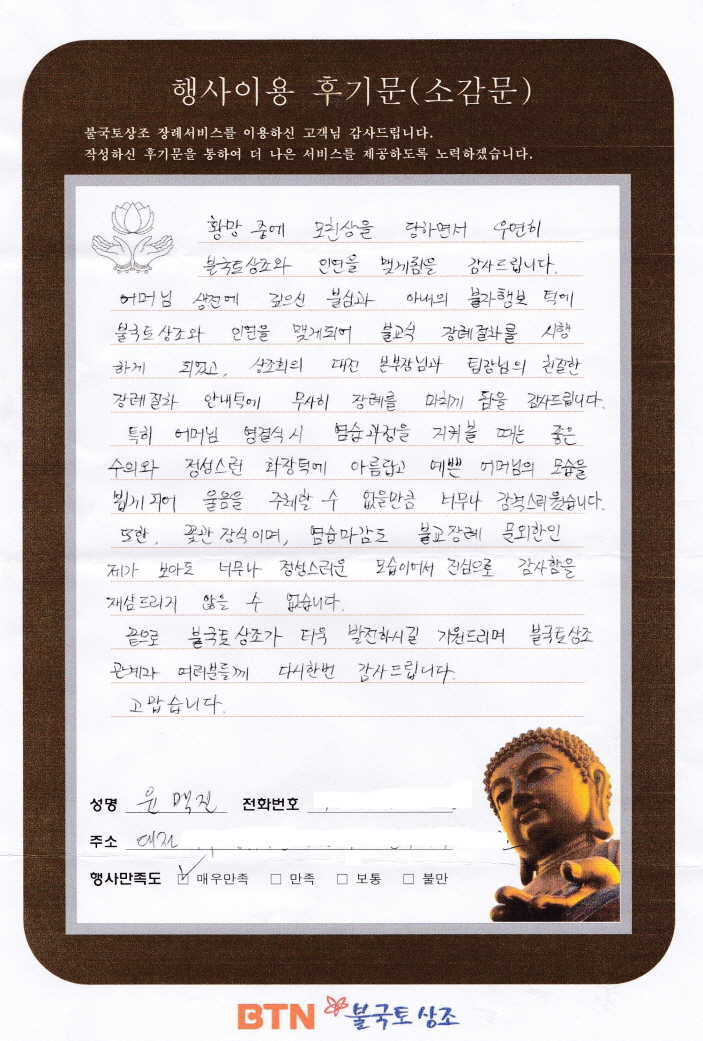 행사이용 후기문(소감문)
불국토상조 장례서비스를 이용하신 고객님 감사드립니다.
작성하신 후기문을 통하여 더 나은 서비스를 제공하도록 노력하겠습니다.
황망 중에 모친상을 당하면서 우연히
불국토상조와 인연을 맺게됨을 감사드립니다.
어머님 생전에 깊으신 불심과 아내의 불자행보 덕에
불국토상조와 인연을 맺게되어 불교식 장례절차를 시행
하게 되었고, 상조회의 대전 본부장님과 팀장님의 친절한
장례절차 안내덕에 무사히 장례를 마치게 됨을 감사드립니다.
특히 어머님 영결식시 염습과정을 지켜볼 때는 좋은
수의와 정성스런 화장덕에 아름답고 예쁜 어머님의 모습을
뵙게되어 울음을 주체할 수 없을만큼 너무나 감격스러웠습니다.
또한, 꽃관장식이며, 염습마감도 불교장례 문외한인
제가 보아도 너무나 정성스러운 모습이어서 진심으로 감사함을
재삼드리지 않을 수 없습니다.
끝으로 불국토상조가 더욱 발전하시길 기원드리며 불국토상조
관계자 여러분들께 다시한번 감사드립니다.
고맙습니다.
성명 윤 맥진 전화번호
주소 대전
행사만족도 매우만족 만족 보통 불만
BTN 불국토상조